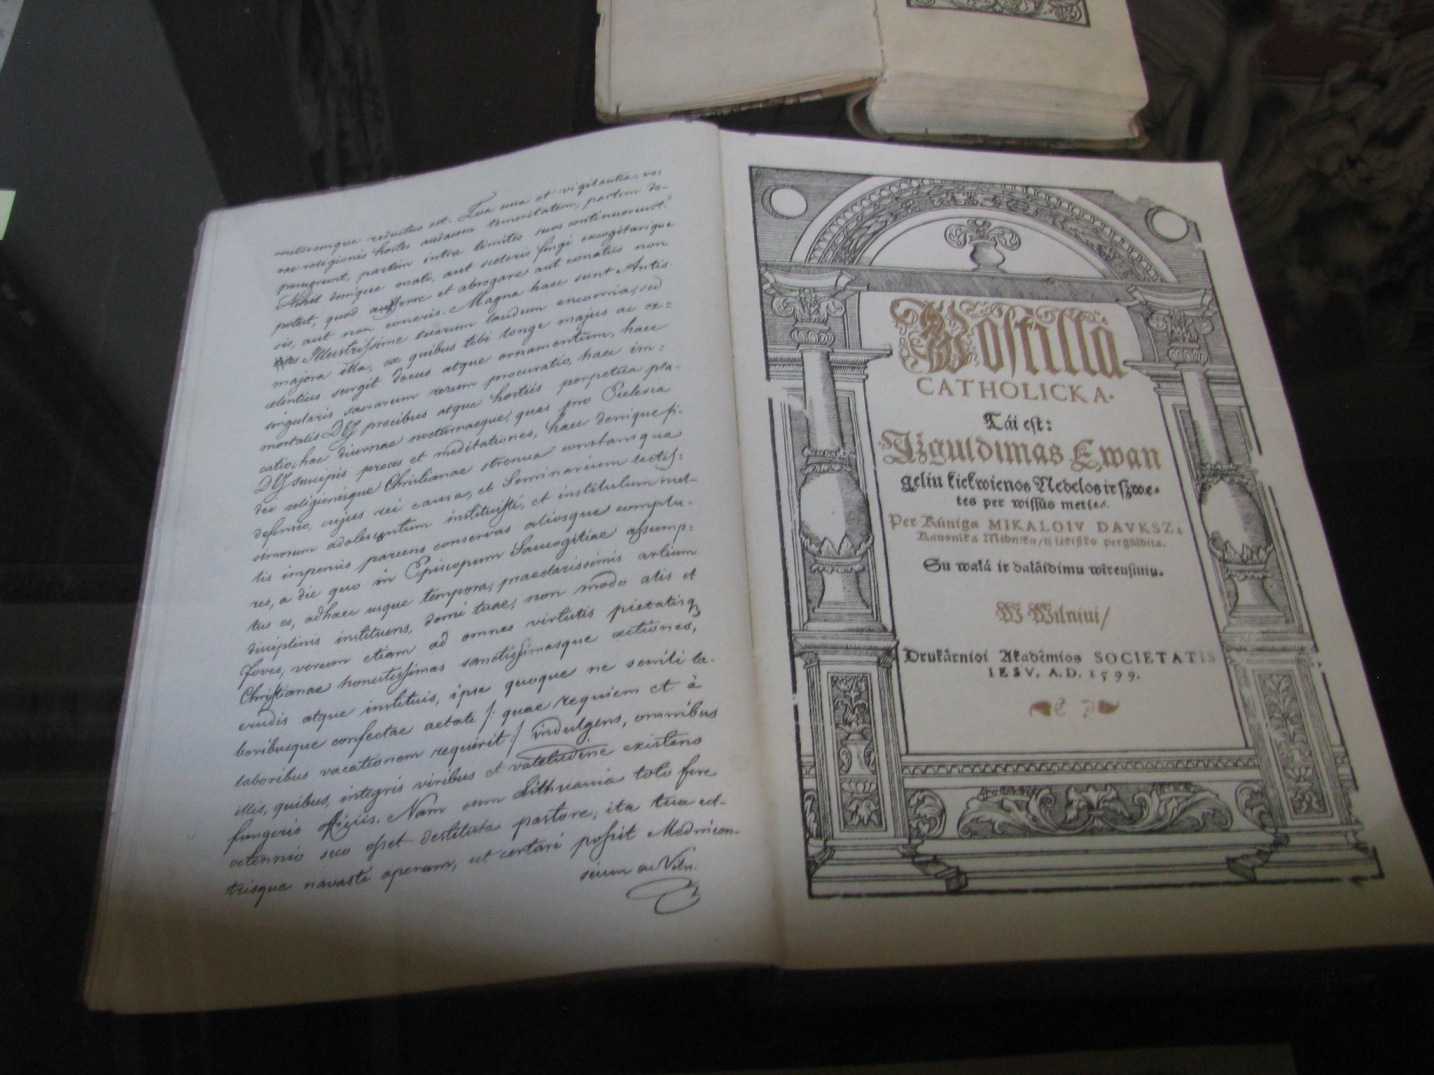 redactus est. Tua cura et vigilantia, ve-
rae religionis hostes audacem temeritatem, partim re-
presserunt, partim intra limites suos continuerunt.
Nihil denique ornati, aut sceleris fingi excogitarique
potest, quod aufferre et abrogare aut conatus non
sis, aut non cuneris. Magna haec sunt Antis-
tes Illustrissime tuarum laudum encomia, sed
majora illa, ex quibus tibi longe majus ac ex-
celentius surgit decus atque ornamentum, haec
singularis sacrarum rerum procuratio, haec im-
mortalis DEI precibus atque hostiis perpetua pla-
catio, hac diurnae nocturnaeque, quas pro Ecclesia
DEI suscipis preces et meditationes, haec denique fi-
dei religionisque Christianae strenua constansque
defensio, cujus rei causa, et Seminarium lectis-
simorum adolescentum instituisti, et institutum mul-
tis impensis parcens conservas aliosque complu-
res, a die quo in Episcopum Samogitiae assump-
tus es, adhaec usque tempora, praeclarissimis artium
disciplinis instituens, domi tuae, non modo alis et
foves, verum etiam ad omnes virtutis pietatisq
Christianae honestissimas sanctissimasque actiones,
erudis atque instituis, ipse quoque ne senili la-
boribusque confectae aetati /: quae requiem et à
laboribus vacationem requirit :/ indulgens, omnibus
illis, quibus, integris viribus et valetudine existens
fungeris officiis. Nam cum Lithuania toto fere
octennio suo esset destituta pastore, ita tua ut-
trisque navasti operam, ut certari possit Mednicen-
sium an Viln.
Postilla
CATHOLICKA.
Tái est:
Iźguldimas Ewan
geliu kiekwienos Nedelos ir szwe-
tes per wissús metús.
Per Kúnigą MIKALOIV DAVKSZą
Kanoniką Médnikų / iź lękiszko pergûldita.
Su walá ir daláidimu wireusiuiu.
W Wilniui /
Drukârnioi Akadêmios SOCIETATIS
IESV. A.D. 1599.